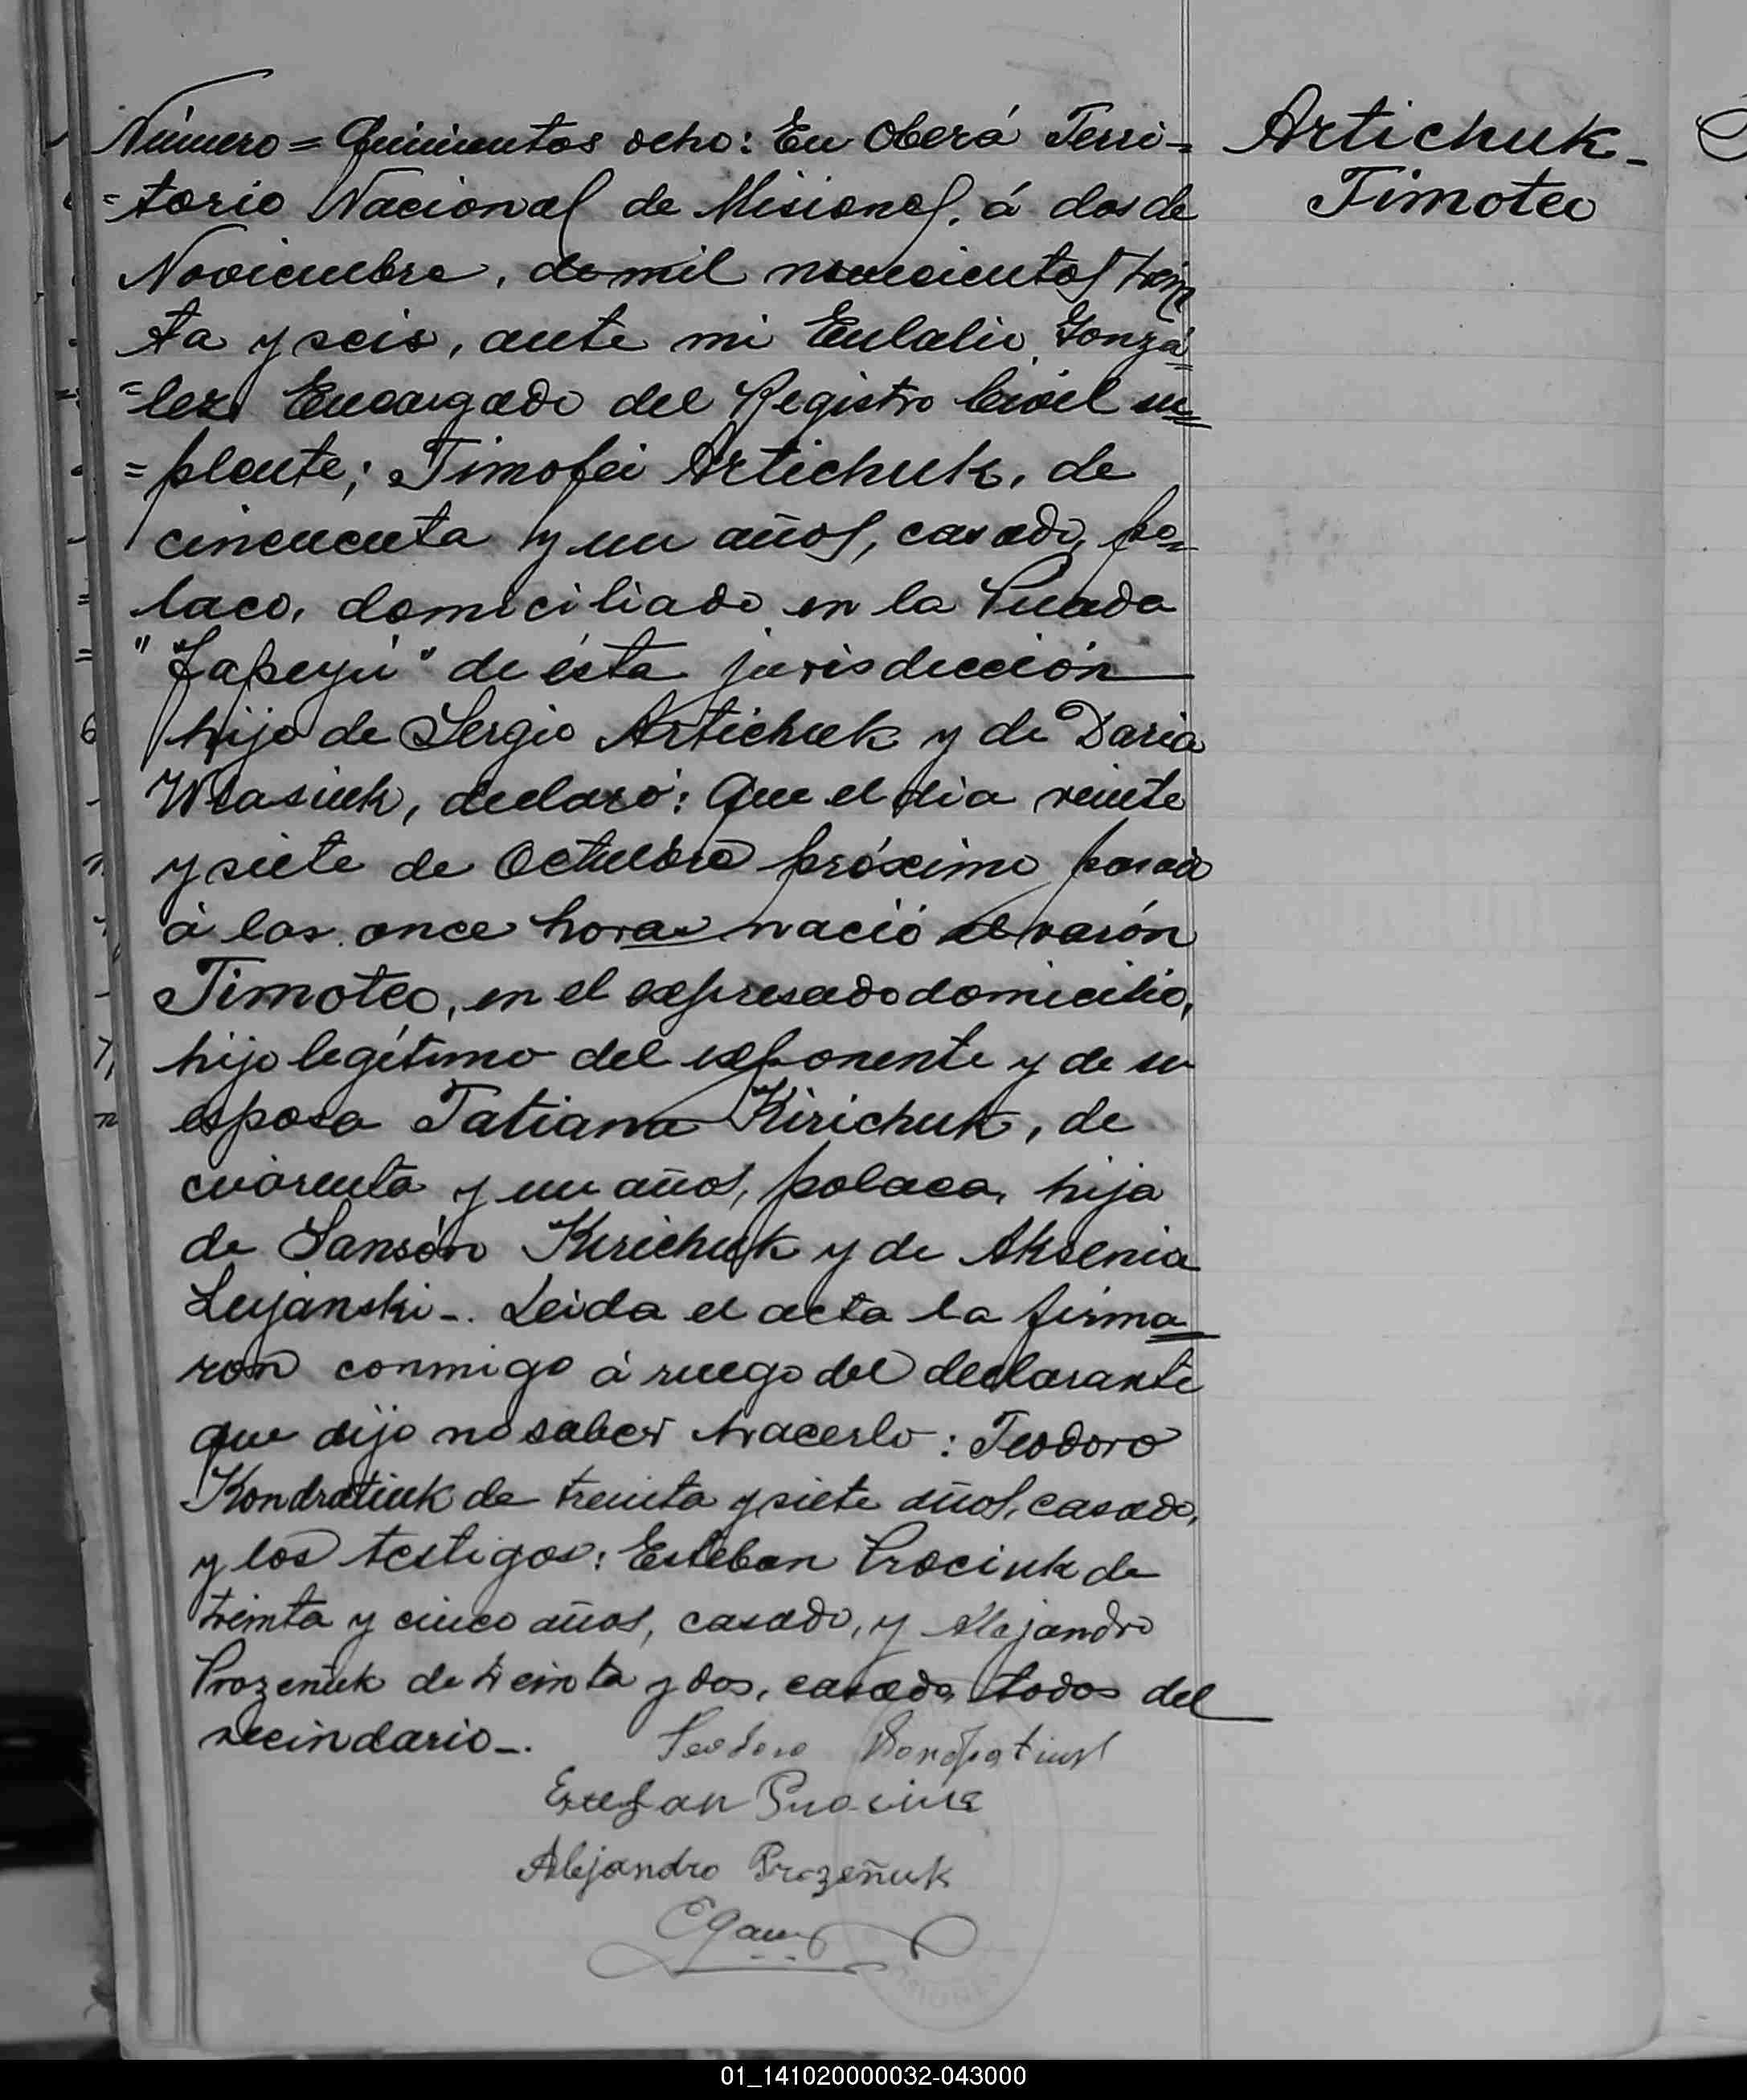 Número = Quinientos ocho: En Oberá Terri=
=torio Nacional de Misiones, á dos de
Noviembre, de mil novecientos trein
ta y seis, ante mi Eulalio Gonzá=
=lez Encargado del Registro Civil su=
=plente; Timofei Artichuk, de
cincuenta y un años, casado, po=
laco, domiciliado en la Picada
"Yapeyú" de ésta jurisdicción
hijo de Sergio Artichuk y de Daria
Wlasiuk, declaró: Que el dia veinte
y siete de Octubre próximo pasado
á las once horas nació el varón
Timoteo, en el expresado domicilio,
hijo legítimo del exponente y de su
esposa Tatiana Kirichuk, de
cuarenta y un años, polaca, hija
de Sansón Kirichuk y de Aksenia
Lujanski-. Leida el acta la firma=
ron conmigo á ruego del declarante
que dijo no saber hacerlo: Teodoro
Kondratiuk de treinta y siete años, casado,
y los testigos: Esteban Prociuk de
treinta y cinco años, casado, y Alejandro
Prozeñuk de treinta y dos, casado, todos del
vecindario-.
Teodoro
Alejandro Prozeñuk
Artichuk-
Timoteo
01_141020000032-043000